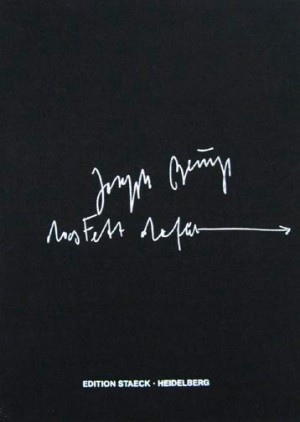 Joseph Beuys
das Fett dafür
EDITION STAECK · HEIDELBERG